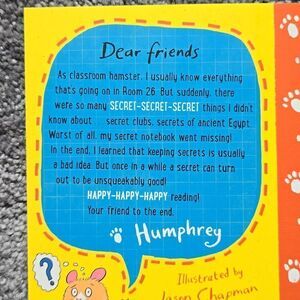 Dear friends
As classroom hamster, I usually know everything
that's going on in Room 26. But suddenly, there
were so many SECRET-SECRET-SECRET things I didn't
know about ... secret clubs, secrets of ancient Egypt.
Worst of all, my secret notebook went missing!
In the end, I learned that keeping secrets is usually
a bad idea. But once in a while a secret can turn
out to be unsqueakably good!
HAPPY-HAPPY-HAPPY reading!
Your friend to the end,
Humphrey
?
Illustrated by
Jason Chapman